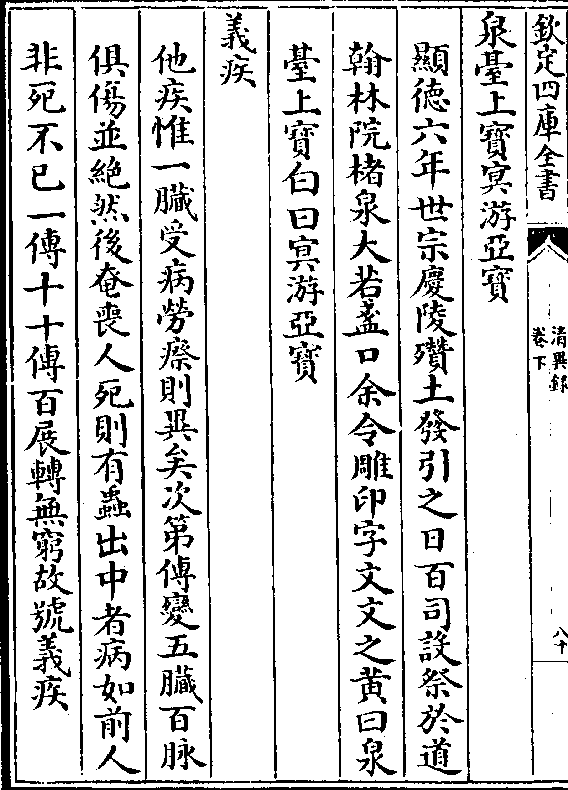 欽定四庫全書
清異錄
卷下
八十
泉臺上寶冥游亞寶
顯徳六年世宗慶陵攢土發引之日百司設祭於道
翰林院楮泉大若盞口余令雕印字文文之黄曰泉
臺上寶白曰冥游亞寶
義疾
他疾惟一臓受病勞瘵則異矣次第傳變五臓百脉
俱傷並絶然後奄喪人死則有蟲出中者病如前人
非死不已一傳十十傳百展轉無窮故號義疾